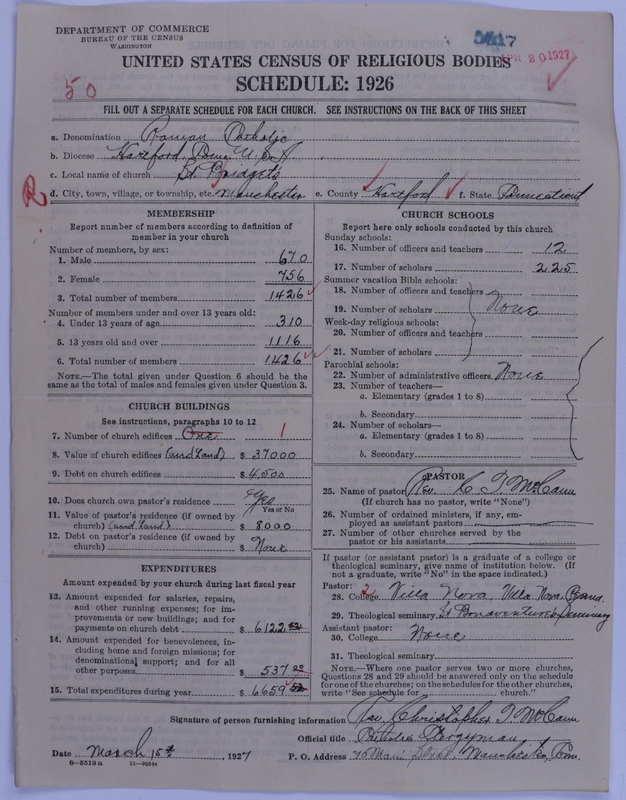 DEPARTMENT OF COMMERCE
BUREAU OF THE CENSUS
WASHINGTON
APR 30 1927
UNITED STATES CENSUS OF RELIGIOUS BODIES
SCHEDULE: 1926
50
FILL OUT A SEPARATE SCHEDULE FOR EACH CHURCH. SEE INSTRUCTIONS ON THE BACK OF THIS SHEET
a. Denomination Roman Catholic
b. Diocese Hartford, Conn. U.S.A.
c. Local name of church St. Bridget's
d. City, town, village, or township, etc. Manchester e. County Hartford f. State Connecticut
MEMBERSHIP
Report number of members according to definition of
member in your church
Number of members, by sex:
1. Male 670
2. Female 756
3. Total number of members 1426
Number of members under and over 13 years old:
4. Under 13 years of age 310
5. 13 years old and over 1116
6. Total number of members 1426
NOTE.—The total given under Question 6 should be
the same as the total of males and females given under Question 3.
CHURCH BUILDINGS
See instructions, paragraphs 10 to 12
7. Number of church edifices One 1
8. Value of church edifices (and Land) $ 37000
9. Debt on church edifices $ 4500
10. Does church own pastor's residence Yes
Yes or No
11. Value of pastor's residence (if owned by
church) (and Land) $ 8000
12. Debt on pastor's residence (if owned by
church) $ None
EXPENDITURES
Amount expended by your church during last fiscal year
13. Amount expended for salaries, repairs,
and other running expenses; for im-
provements or new buildings; and for
payments on church debt $ 6122
14. Amount expended for benevolences, in-
cluding home and foreign missions; for
denominational support; and for all
other purposes $ 537
15. Total expenditures during year $ 6659
CHURCH SCHOOLS
Report here only schools conducted by this church
Sunday schools:
16. Number of officers and teachers 12
17. Number of scholars 225
Summer vacation Bible schools:
18. Number of officers and teachers
19. Number of scholars None
Week-day religious schools:
20. Number of officers and teachers
21. Number of scholars
Parochial schools:
22. Number of administrative officers None
23. Number of teachers—
a. Elementary (grades 1 to 8)
b. Secondary
24. Number of scholars—
a. Elementary (grades 1 to 8)
b. Secondary
PASTOR
25. Name of pastor Rev. C. T. McCann
(If church has no pastor, write "None")
26. Number of ordained ministers, if any, em-
ployed as assistant pastors
27. Number of other churches served by the
pastor or his assistants
If pastor (or assistant pastor) is a graduate of a college or
theological seminary, give name of institution below. (If
not a graduate, write "No" in the space indicated.)
Pastor: 2
28. College Villa Nova, Villa Nova, Penna.
29. Theological seminary St Bonaventure's Seminary
Assistant pastor:
30. College None
31. Theological seminary
NOTE.—Where one pastor serves two or more churches,
Questions 28 and 29 should be answered only on the schedule
for one of the churches; on the schedules for the other churches,
write "See schedule for church."
Signature of person furnishing information Rev. Christopher T. McCann
Official title Catholic Clergyman
Date March 15th, 1927 P. O. Address Main Street, Manchester, Conn.
8—5519a